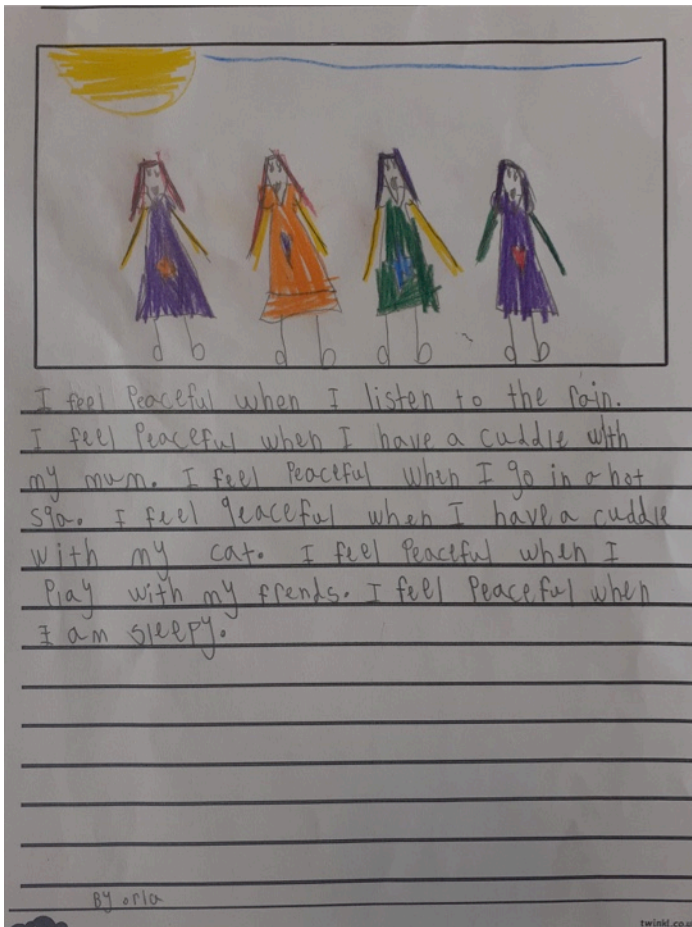 I feel Peaceful when I listen to the rain.
I feel Peaceful when I have a cuddle with
my mum. I feel Peaceful when I go in a hot
sqa. I feel qeaceful when I have a cuddle
with my cat. I feel Peaceful when I
Play with my frends. I feel Peaceful when
I am sleepy.
By orla
twinkl.co.u